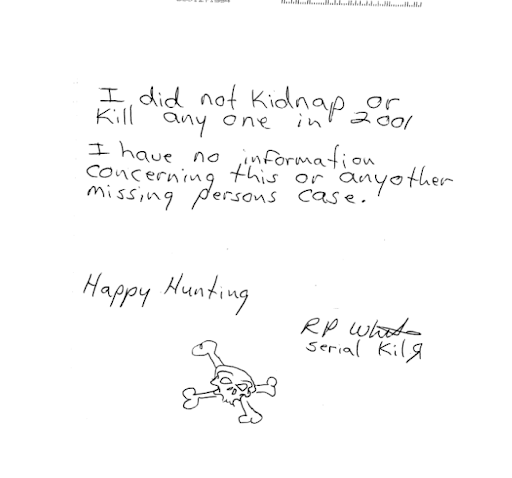 I did not Kidnap or
Kill any one in 2001
I have no information
concerning this or anyother
missing persons case.
Happy Hunting
RP White
serial KilЯ